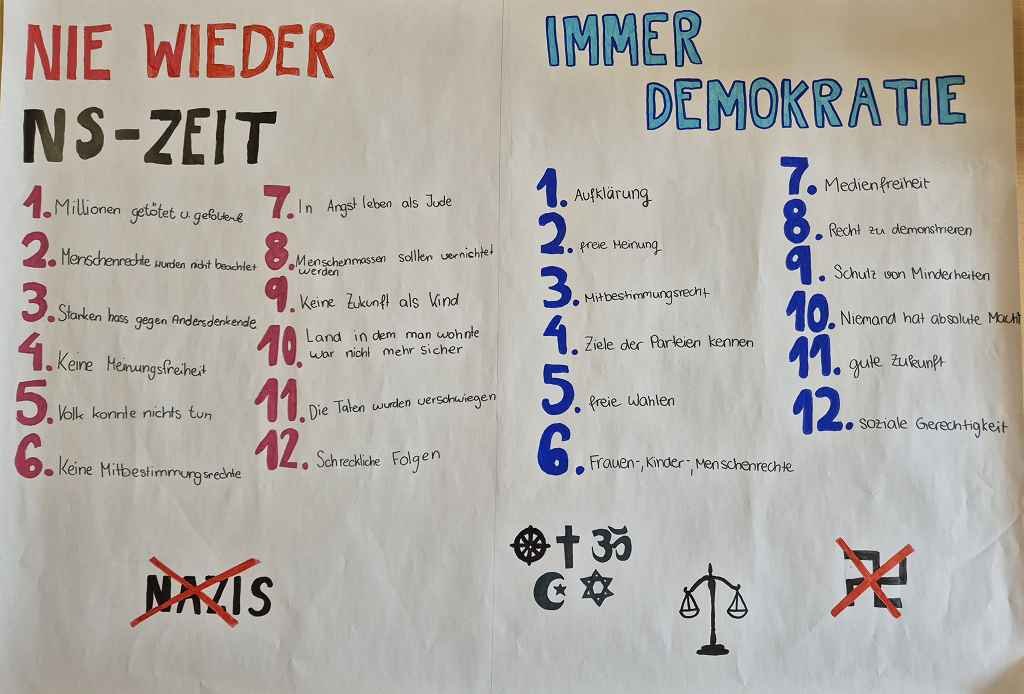 NIE WIEDER
NS-ZEIT
1. Millionen getötet u. gefoltert
2. Menschenrechte wurden nicht beachtet
3. Starken hass gegen Andersdenkende
4. Keine Meinungsfreiheit
5. Volk konnte nichts tun
6. Keine Mitbestimmungsrechte
7. In Angst leben als Jude
8. Menschenmassen sollten vernichtet
werden
9. Keine Zukunft als Kind
10. Land in dem man wohnte
war nicht mehr sicher
11. Die Taten wurden verschwiegen
12. Schreckliche Folgen
NAZIS
IMMER
DEMOKRATIE
1. Aufklärung
2. freie Meinung
3. Mitbestimmungsrecht
4. Ziele der Parteien kennen
5. freie Wahlen
6. Frauen-, Kinder-, Menschenrechte
7. Medienfreiheit
8. Recht zu demonstrieren
9. Schutz von Minderheiten
10. Niemand hat absolute Macht
11. gute Zukunft
12. soziale Gerechtigkeit